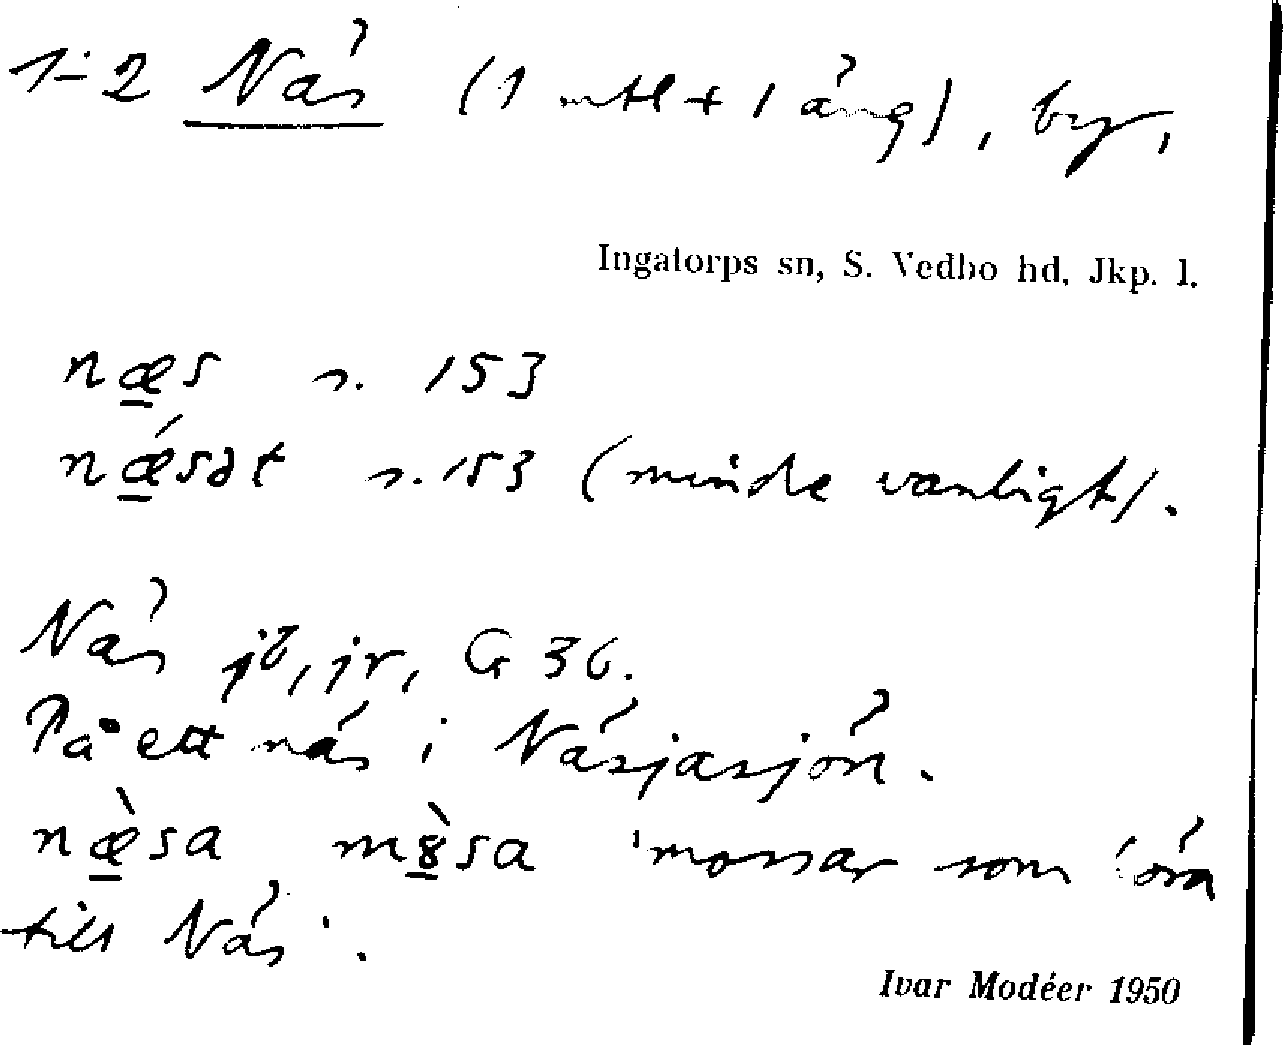 1-2 Näs (1 mtl + 1 äng), by,
Ingatorps sn, S. Vedbo hd, Jkp. l.
næs n. 153
nǽsət n. 153 (mindre vanligt).
Näs jb, jr, G 36.
På ett näs i Näsjasjön.
næ̀sa mɞ̀sa 'mossar som höra
till Näs'.
Ivar Modéer 1950